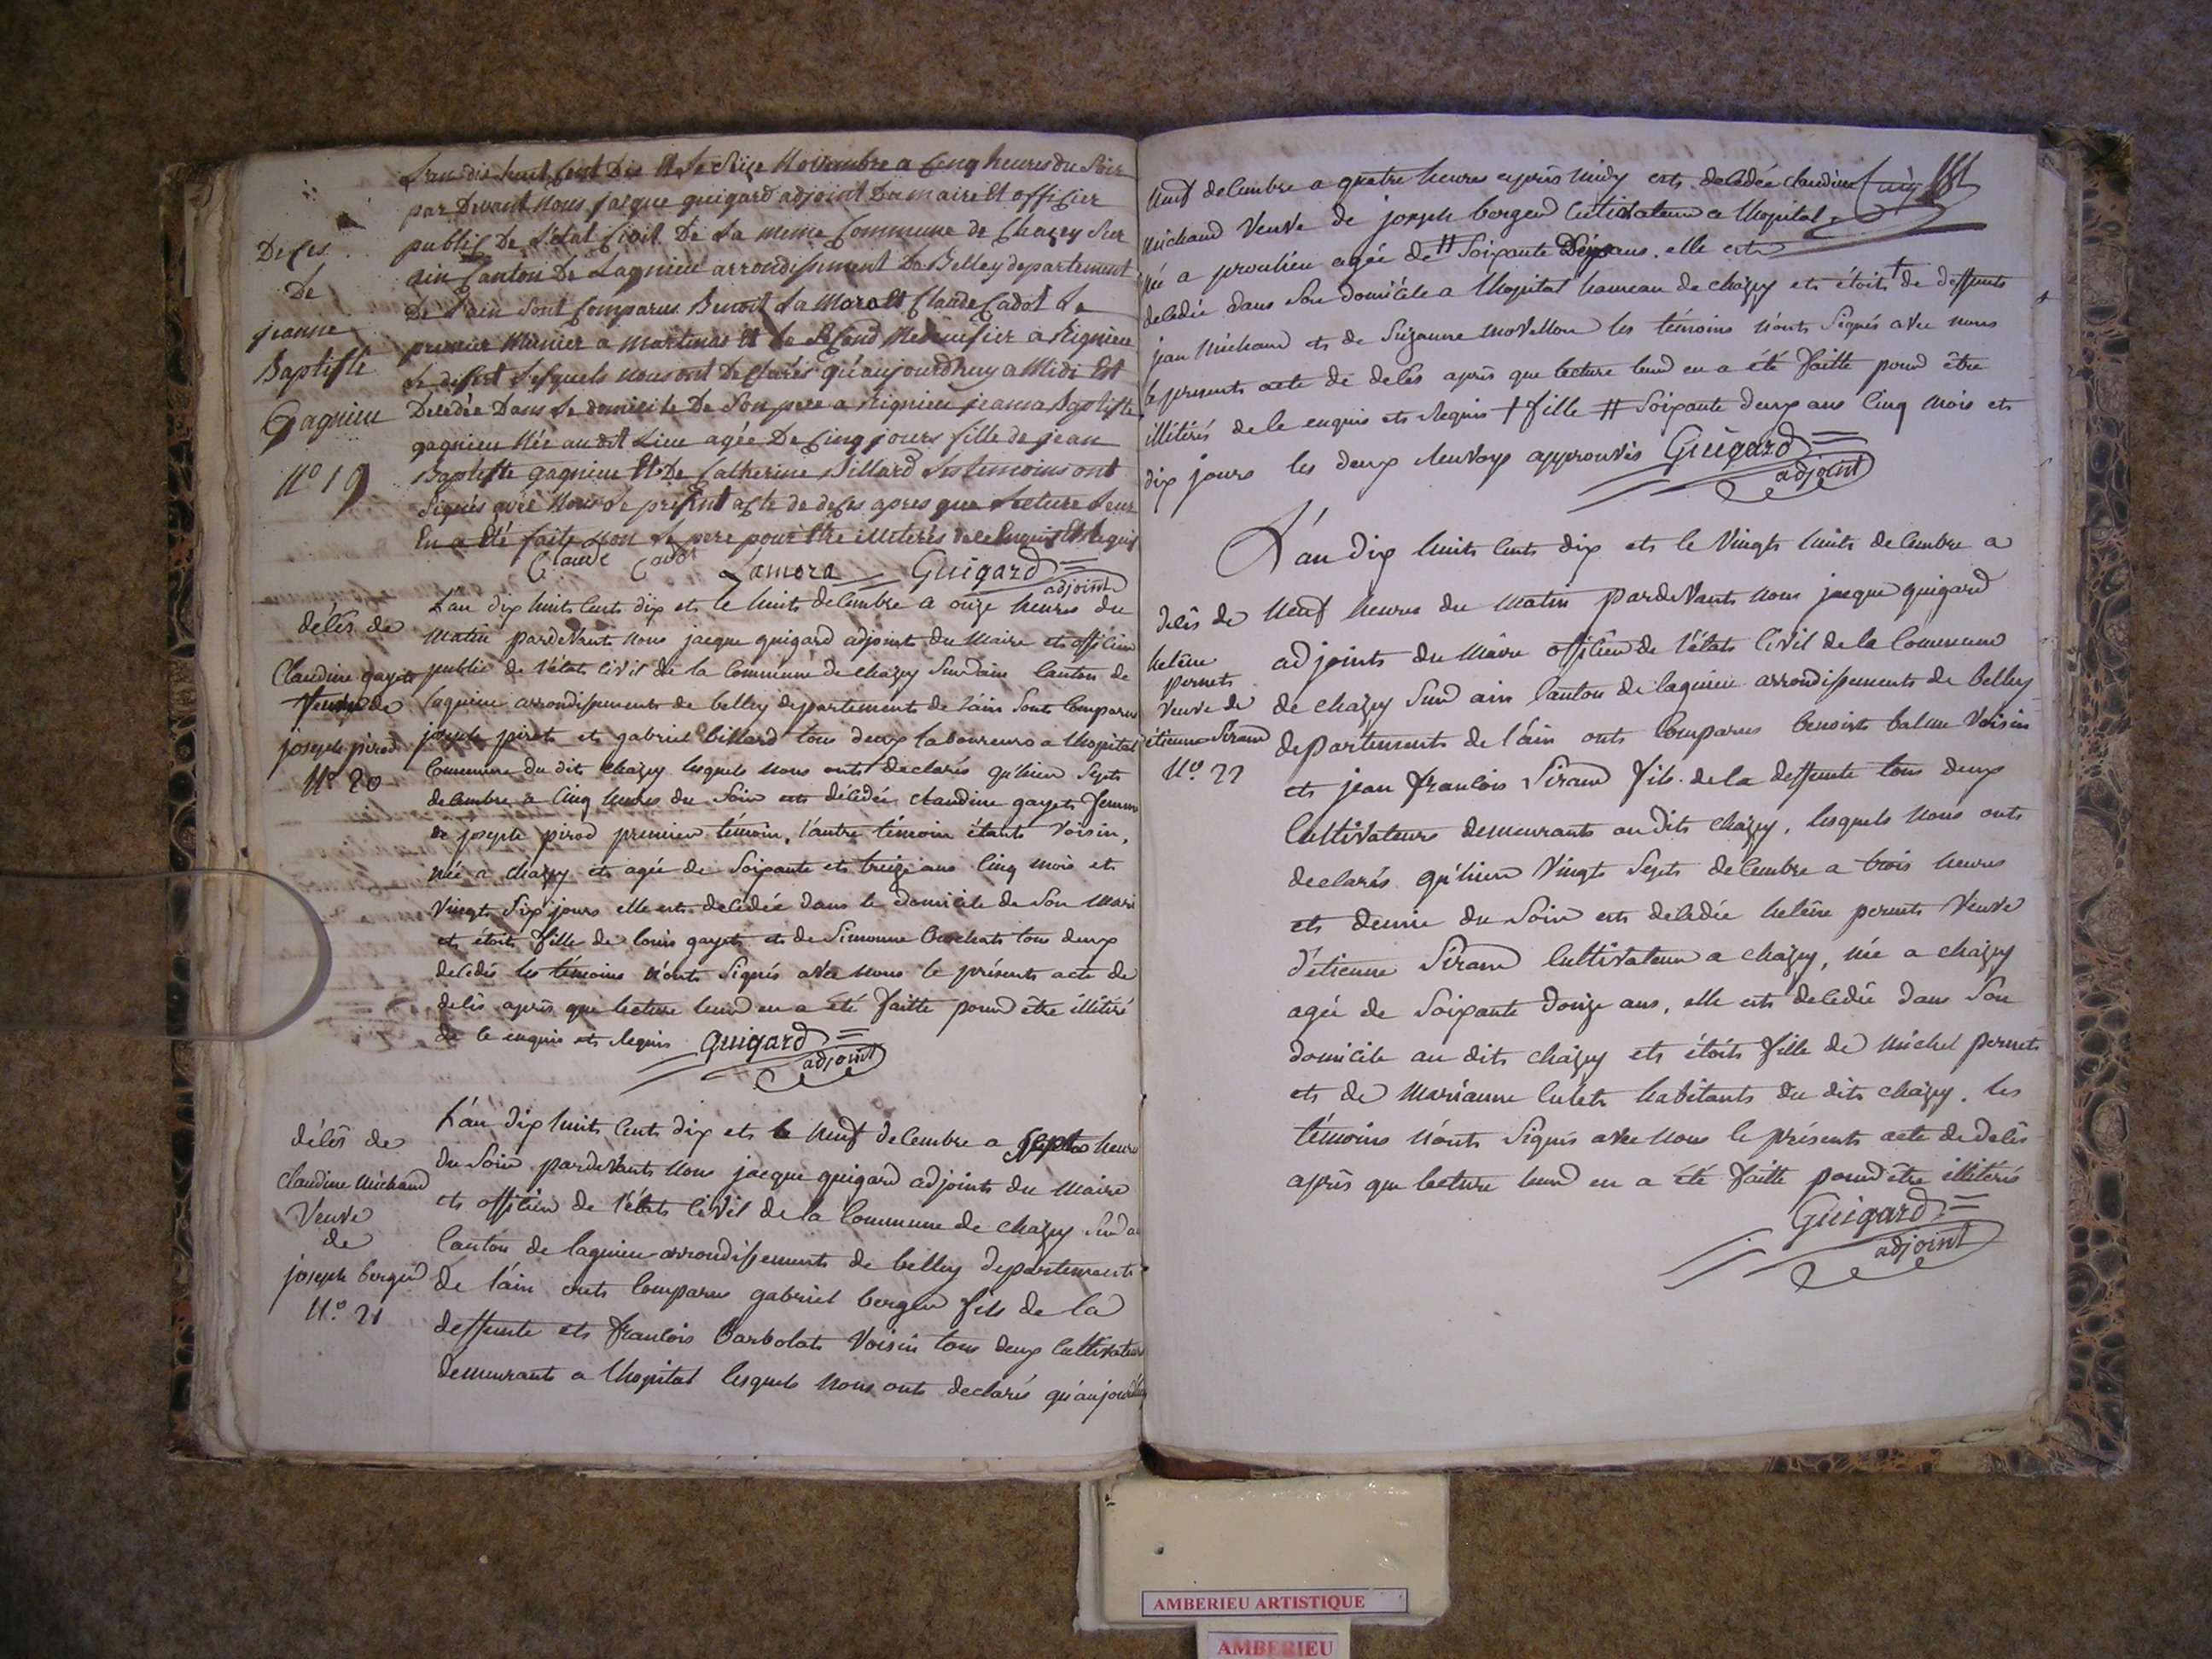 L'an dix huit Cent Dix Et Le Seize Novembre a Cinq heures du Soir
par Devant Nous jacque guigard adjoint Du maire Et officier
public De L'état Civil De La meme Commune de Chazey Sur
ain Canton De Lagnieu arrondissement De Belley departement
De L'ain Sont Comparus Benoit La Mora Et Claude Cadot Le
premier Munier a Martinas Et Le Second a Rignieu
Le desert Lesquels nous ont Declarés qu'aujourdhuy a Midi Est
Decedée Dans Le domicile De Son pere a rignieu jeanne Baptiste
gagnieu Née au dit Lieu agée De Cinq jours fille de jean
Baptiste gagnieu Et De Catherine Billard Les temoins ont
Signés avec Nous Le présent acte de deces apres que Lecture Leur
En a été faite Non Le pere pour être illiterés de ce Enquis Et Requis
Claude Cadot Lamora Guigard
adjoint
Deces
De
jeanne
Baptiste
Gagnieu
N° 19
L'an dix huits cents dix ets le huits decembre a onze heures du
matin pardevants nous jacque guigard adjoints du Maire ets officier
public de l'états civil de la Commune de chazey Sur d'ain Canton de
lagnieu arrondissements de belley departements de l'ain Sonts Comparus
joseph pirots ets gabriel billard tous deux laboureurs a lhopital
Commune du dits chazey lesquels nous onts declarés qu'hier Septs
decembre a cinq heures du Soir ets décedée claudine gayets femme
de joseph pirod premier témoin, l'autre témoin étants voisin,
née a chazey ets agée de Soixante ets treize ans Cinq mois ets
Vingts Six jours elle ets decedée dans le domicile de Son Mari
ets étoits fille de louis gayets ets de Simonne tous deux
decedés les témoins n'onts Signés avec nous le présents acte de
decès après que lecture leur en a été faitte pour être illitéré
de ce enquis ets requis Guigard
adjoint
décès de
Claudine gayets
Veuve de
joseph pirod
N° 20
L'an dix huits cents dix ets le neuf decembre a Septs heures
du Soir pardevants nous jacque guigard adjoints du Maire
ets officier de l'états civil de la Commune de chazey Sur
Canton de lagnieu arrondissements de belley departements
de l'ain onts Comparus gabriel berger fils de la
deffunte ets francois barbolats voisin tous deux Cultivateurs
demeurants a lhopital lesquels nous onts declarés qu'aujourd'huy
décès de
Claudine Michaud
Veuve
de
joseph berger
N° 21
neuf decembre a quatre heures après midy ets decedée claudine
michaud veuve de joseph berger Cultivateur a lhopital
née a proulieu agée de # Soixante Dix ans. elle ets
decedée dans Son domicile a lhopital hameau de chazey ets étoits † de deffunts
jean Michaud ets de Suzanne les témoins n'onts Signés avec nous
le presents acte de decès après que lecture leur en a été faitte pour être
illitérés de ce enquis ets requis † fille # Soixante deux ans Cinq mois ets
dix jours les deux renvoys approuvés Guigard
adjoint
L'an dix huits cents dix ets le Vingts huits decembre a
neuf heures du Matin pardevants nous jacque guigard
adjoints du Maire officier de l'états Civil de la Commune
de chazey Sur ain Canton de lagnieu arrondissements de belley
departements de l'ain onts Comparus benoits balme Voisin
ets jean francois Sirand fils de la deffunte tous deux
Cultivateurs demeurants au dits chazey, lesquels nous onts
declarés qu'hier Vingts Septs decembre a trois heures
ets demie du Soir ets decedée helène pernets Veuve
d'etienne Sirand Cultivateur a chazey, née a chazey
agée de Soixante Douze ans, elle ets decedée dans Son
domicile au dits chazey ets étoits fille de Michel pernets
ets de Marianne habitants du dits chazey. les
témoins n'onts Signés avec nous le présents acte de decès
après que lecture leur en a été faitte pour être illitérés
Guigard
adjoint
décès de
helène
pernets
Veuve de
étienne Sirand
N° 22
AMBERIEU ARTISTIQUE
AMBERIEU